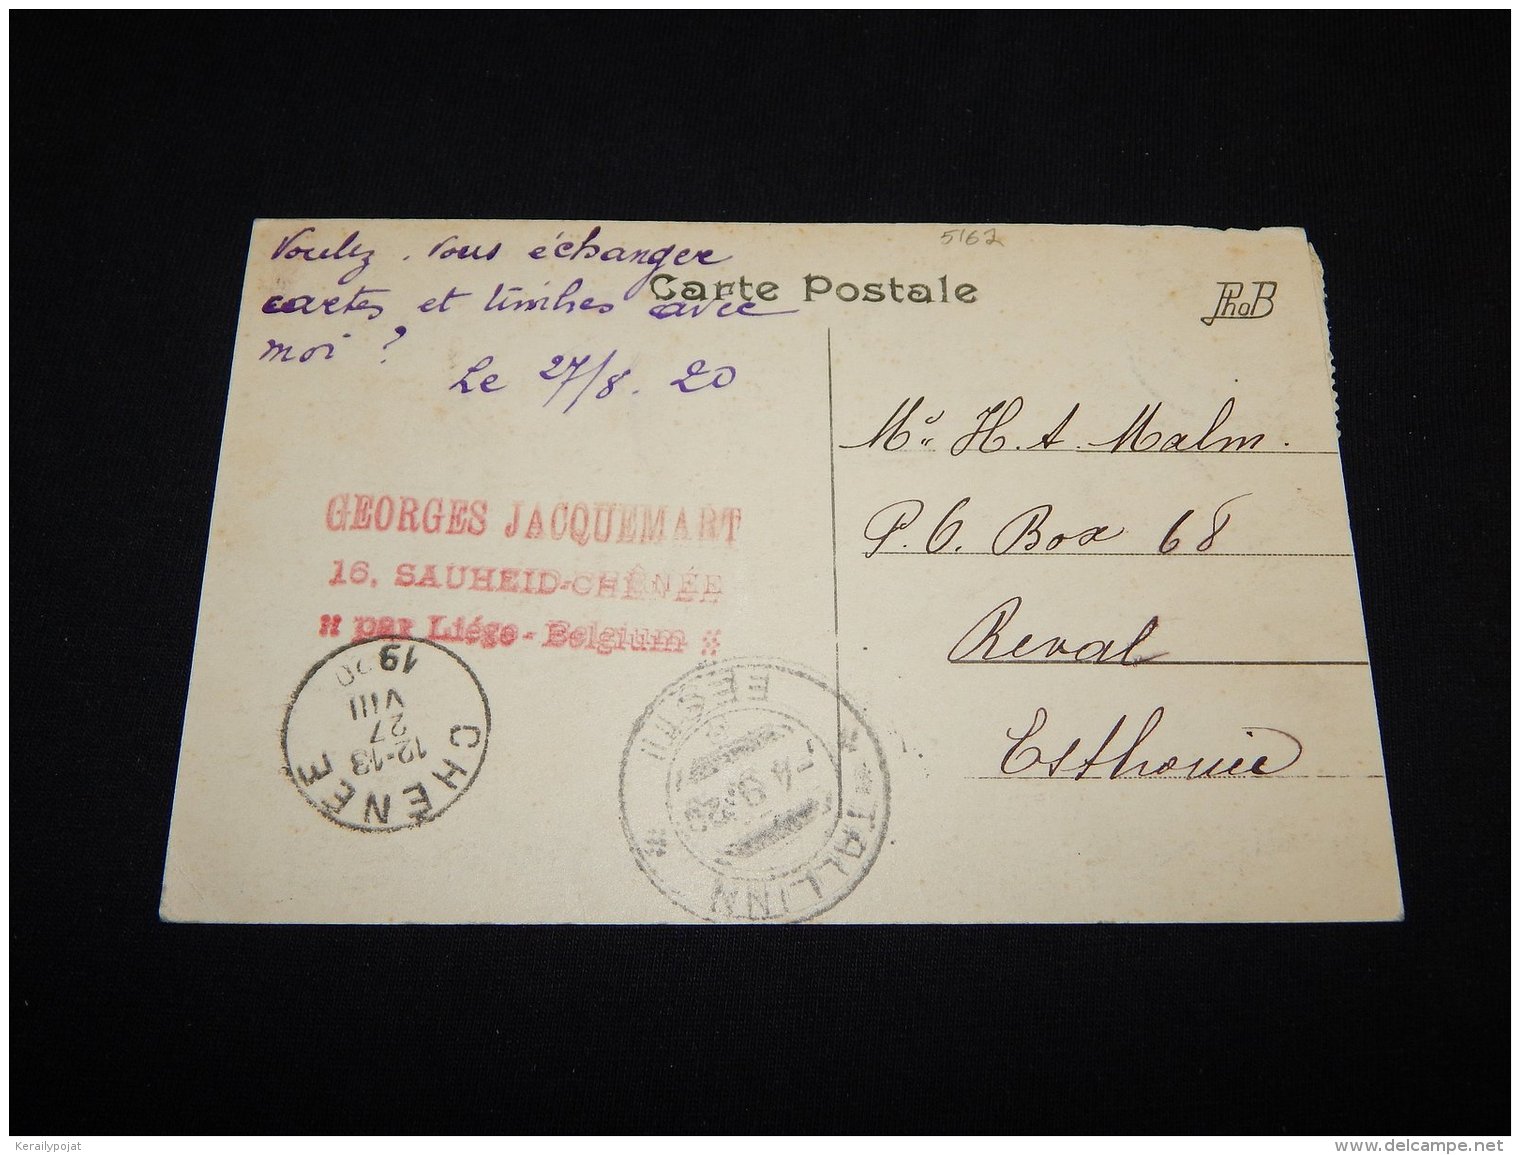 5162
Voulez-vous échanger
cartes et timbres avec
moi ?
Le 27/8.20
Carte Postale
PhoB
Mr. H. A. Malm.
P. O. Box 68
Reval
Esthonie
GEORGES JACQUEMART
16, SAUHEID-CHÊNÉE
" par Liége - Belgium "
CHÊNÉE
12-13
27
VIII
1920
TALLINN
EESTI
Kerailypojat
delcampe.net